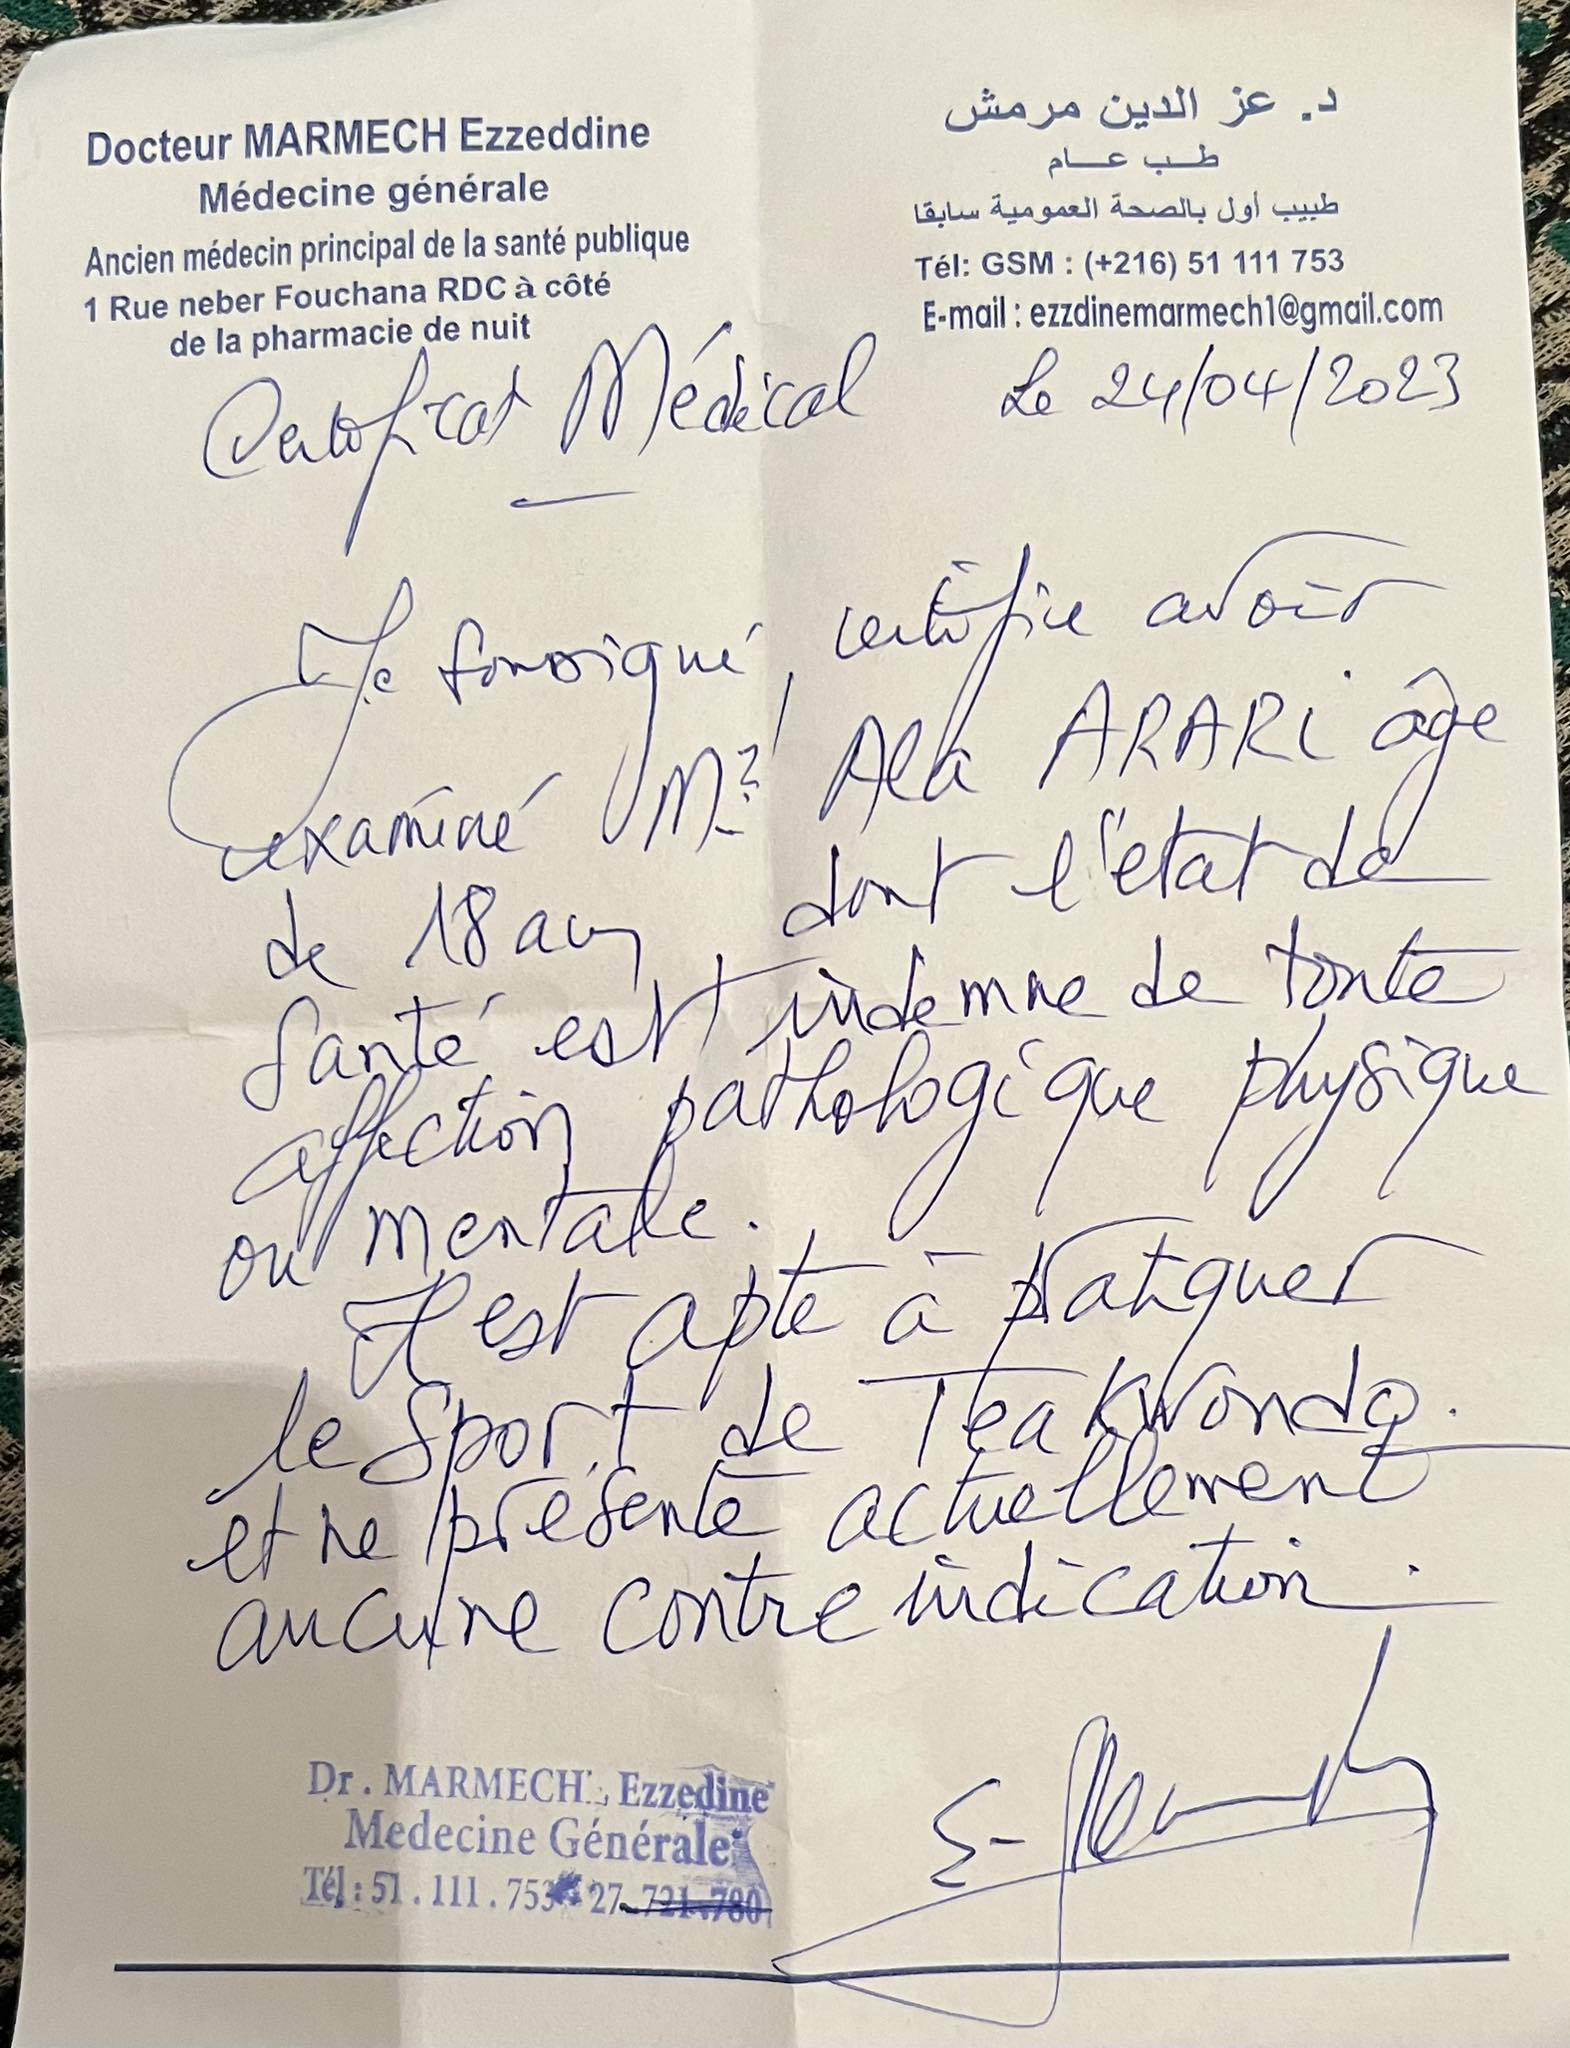 Docteur MARMECH Ezzeddine
Médecine générale
Ancien médecin principal de la santé publique
1 Rue neber Fouchana RDC à côté
de la pharmacie de nuit
د. عز الدين مرمش
طب عام
طبيب أول بالصحة العمومية سابقا
Tél: GSM : (+216) 51 111 753
E-mail : ezzdinemarmech1@gmail.com
Certificat Médical
Le 24/04/2023
Je soussigné, certifie avoir
examiné Mr Ala ARARI âge
de 18 ans, dont l'état de
santé est indemne de toute
affection pathologique physique
ou mentale.
Il est apte à pratiquer
le sport de Teakwondo.
et ne présente actuellement
aucune contre indication.
Dr. MARMECH Ezzedine
Medecine Générale
Tél : 51 . 111 . 753 27 721 780